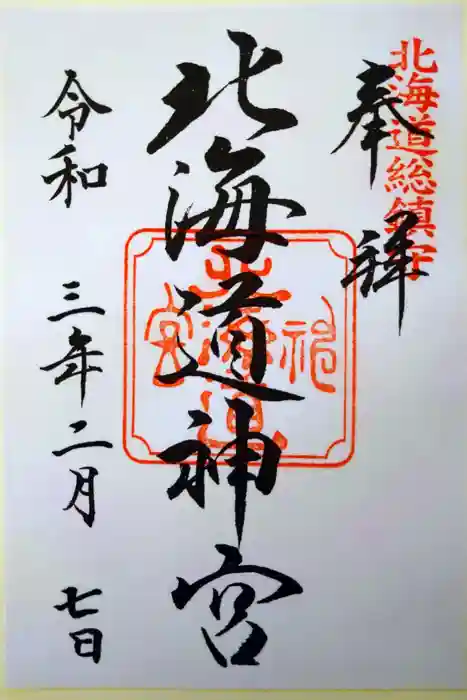 北海道総鎮守
奉拝
北海道神宮
令和三年二月七日